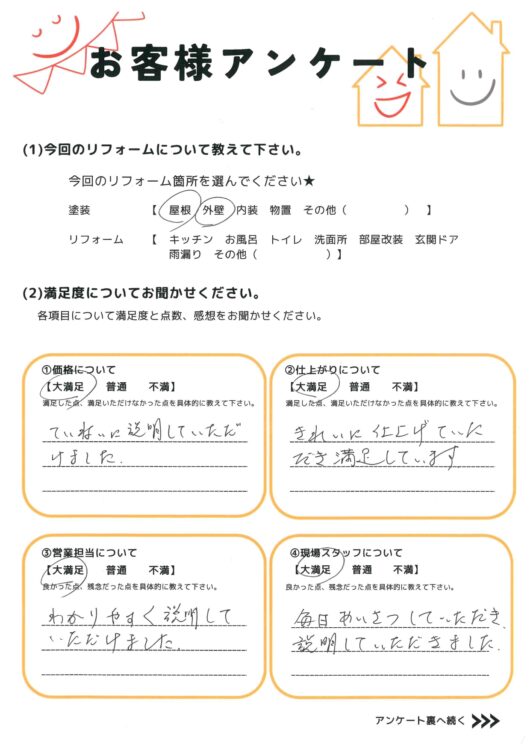 お客様アンケート
(1)今回のリフォームについて教えて下さい。
今回のリフォーム箇所を選んでください★
塗装 【 屋根 外壁 内装 物置 その他（ ） 】
リフォーム 【 キッチン お風呂 トイレ 洗面所 部屋改装 玄関ドア
雨漏り その他（ ）】
(2)満足度についてお聞かせください。
各項目について満足度と点数、感想をお聞かせください。
①価格について
【大満足 普通 不満】
満足した点、満足いただけなかった点を具体的に教えて下さい。
ていねいに説明していただ
けました.
②仕上がりについて
【大満足 普通 不満】
満足した点、満足いただけなかった点を具体的に教えて下さい。
きれいに仕上げていた
だき満足しています
③営業担当について
【大満足 普通 不満】
良かった点、残念だった点を具体的に教えて下さい。
わかりやすく説明して
いただけました.
④現場スタッフについて
【大満足 普通 不満】
良かった点、残念だった点を具体的に教えて下さい。
毎日あいさつしていただき.
説明していただきました.
アンケート裏へ続く